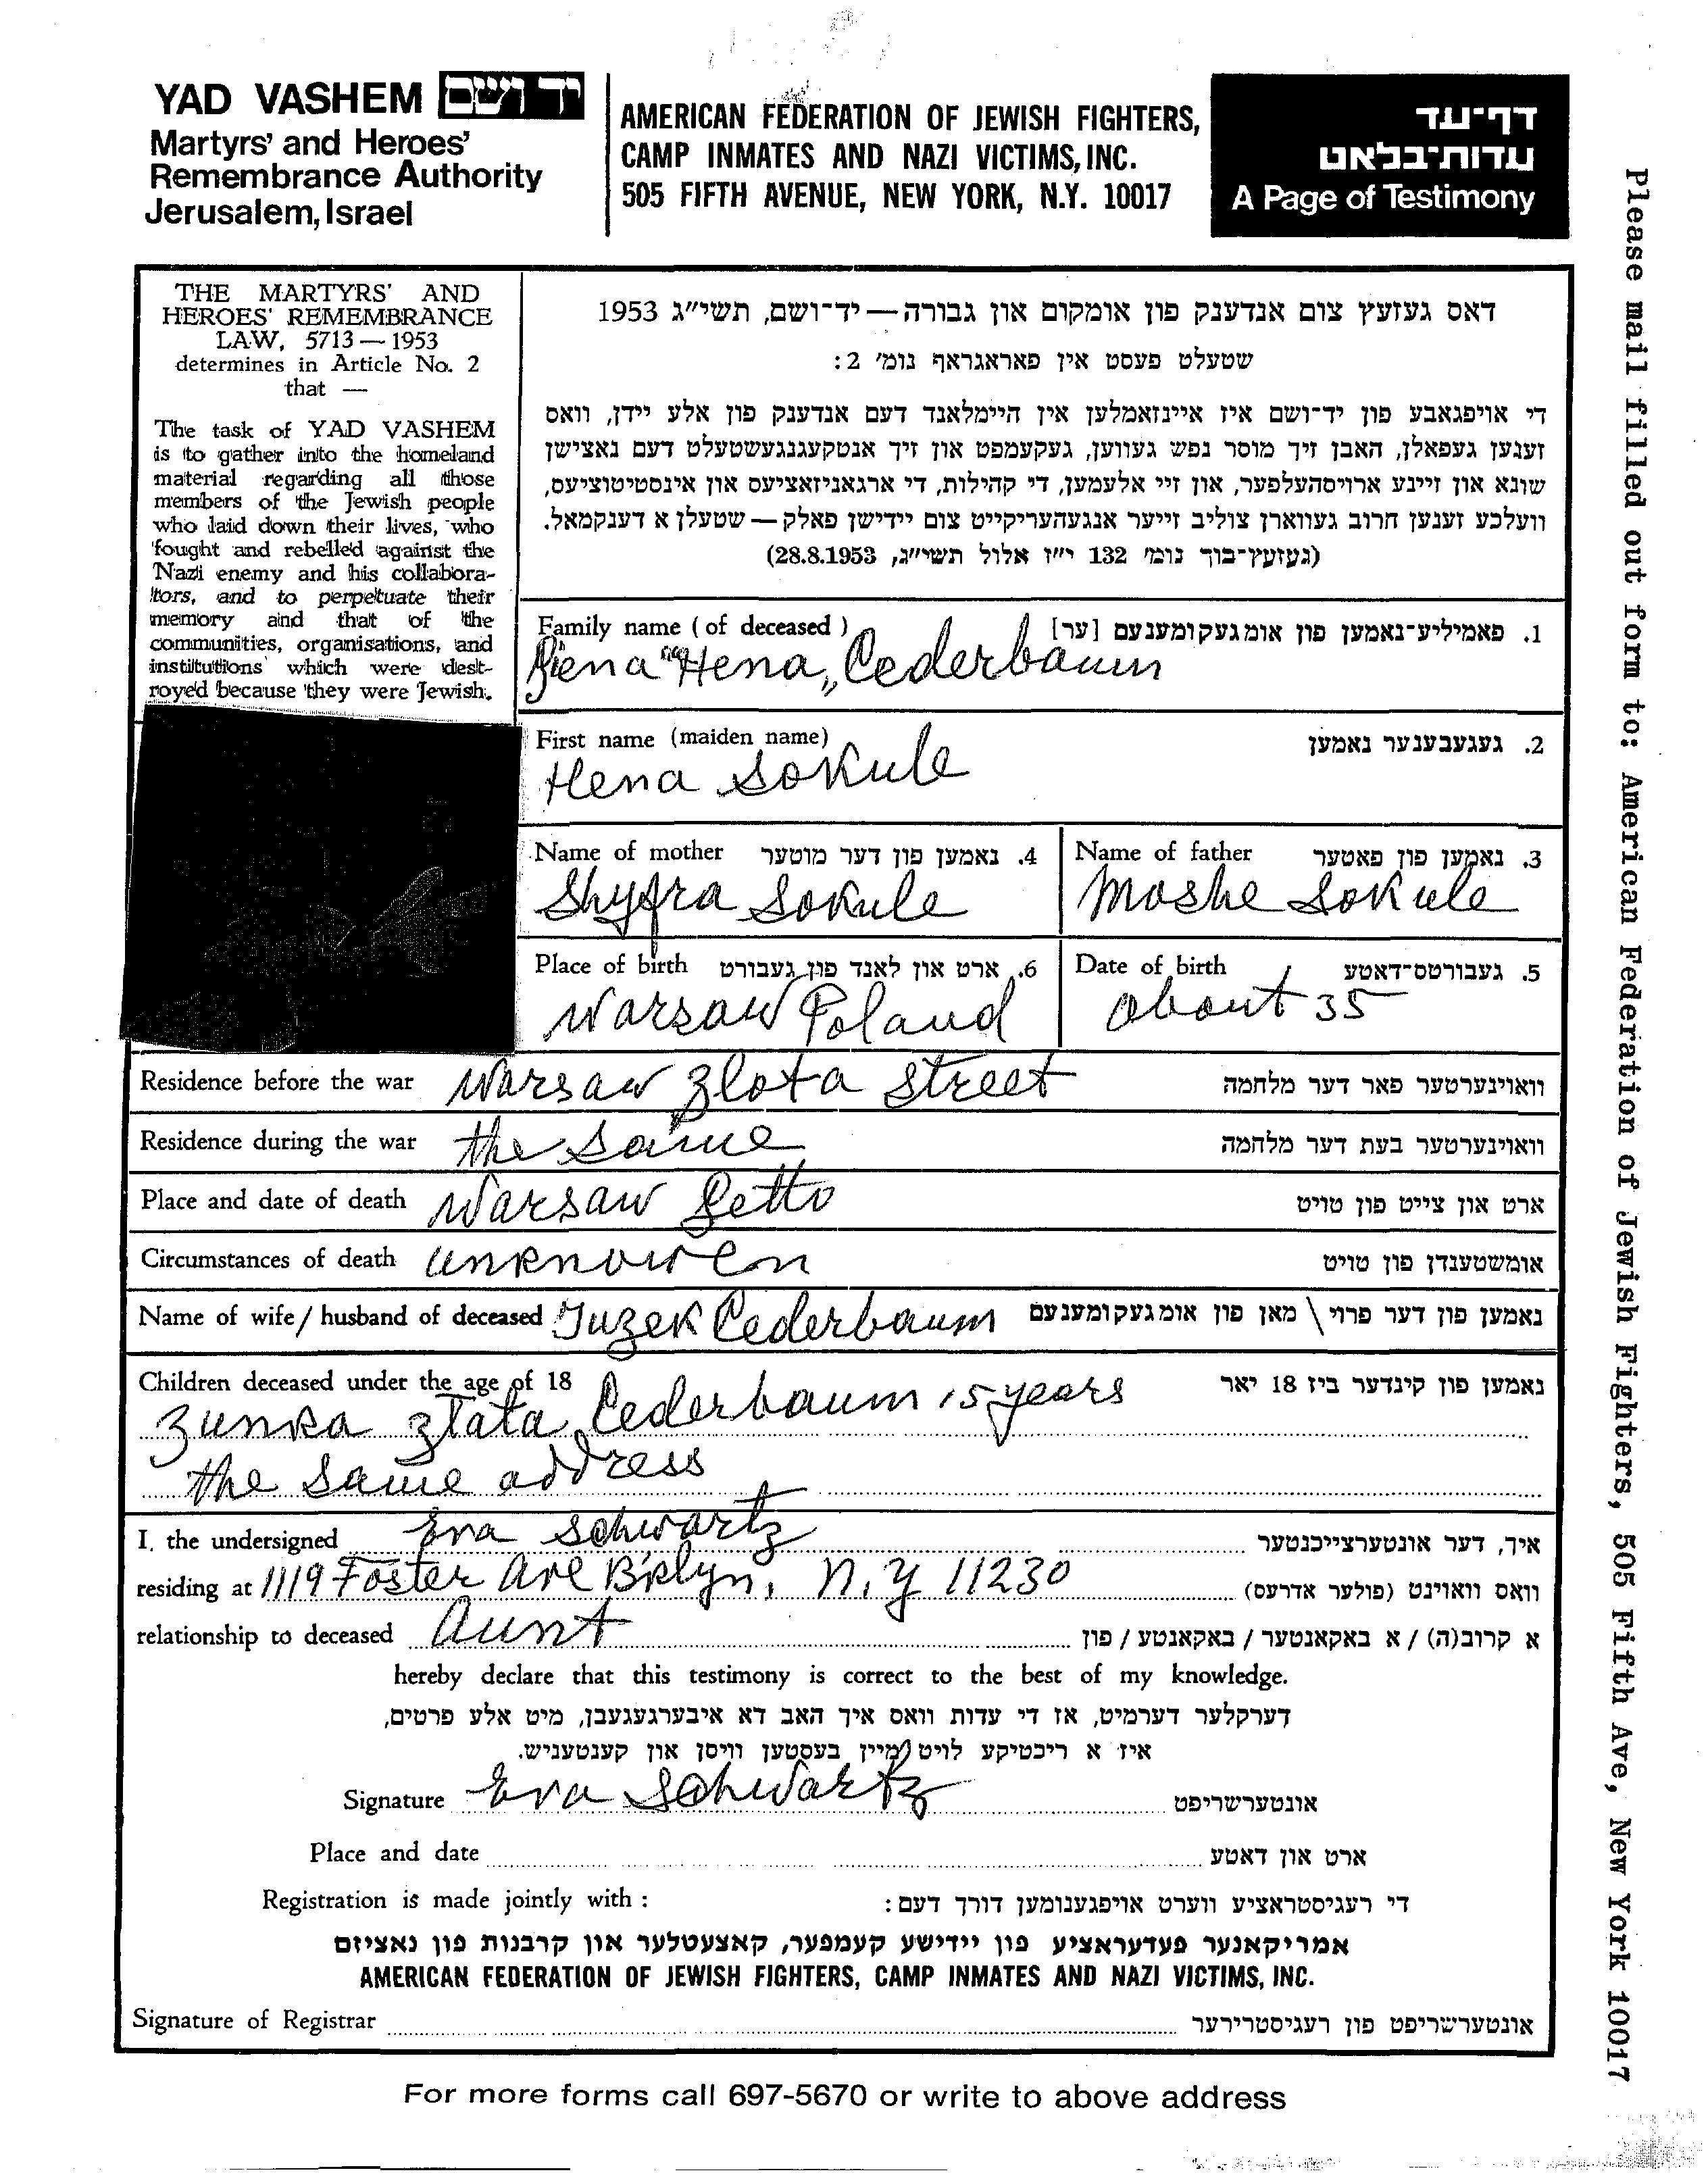 YAD VASHEM יד ושם
Martyrs' and Heroes'
Remembrance Authority
Jerusalem, Israel
AMERICAN FEDERATION OF JEWISH FIGHTERS,
CAMP INMATES AND NAZI VICTIMS, INC.
505 FIFTH AVENUE, NEW YORK, N.Y. 10017
דף־עד
עדות־בלאט
A Page of Testimony
THE MARTYRS' AND
HEROES' REMEMBRANCE
LAW, 5713 — 1953
determines in Article No. 2
that —
The task of YAD VASHEM
is to gather into the homeland
material regarding all those
members of the Jewish people
who laid down their lives, who
fought and rebelled against the
Nazi enemy and his collabora-
tors, and to perpetuate their
memory and that of the
communities, organisations, and
institutions which were dest-
royed because they were Jewish.
דאס געזעץ צום אנדענק פון אומקום און גבורה — יד־ושם, תשי״ג 1953
שטעלט פעסט אין פאראגראף נומ׳ 2:
די אויפגאבע פון יד־ושם איז איינזאמלען אין היימלאנד דעם אנדענק פון אלע יידן, וואס
זענען געפאלן, האבן זיך מוסר נפש געווען, געקעמפט און זיך אנטקעגנגעשטעלט דעם נאצישן
שונא און זיינע ארויסהעלפער, און זיי אלעמען, די קהילות, די ארגאניזאציעס און אינסטיטוציעס,
וועלכע זענען חרוב געווארן צוליב זייער אנגעהעריקייט צום יידישן פאלק — שטעלן א דענקמאל.
(געזעץ־בוך נומ׳ 132 י״ז אלול תשי״ג, 28.8.1953)
Family name (of deceased) 1. פאמיליע־נאמען פון אומגעקומענעם [ער]
"Hena" Cederbaum
First name (maiden name) 2. געגעבענער נאמען
Hena Sokule
Name of mother 4. נאמען פון דער מוטער
Shyfra Sokule
Name of father 3. נאמען פון פאטער
Moshe Sokule
Place of birth 6. ארט און לאנד פון געבורט
Warsaw Poland
Date of birth 5. געבורטס־דאטע
about 35
Residence before the war Warsaw Zlota Street וואוינערטער פאר דער מלחמה
Residence during the war the same וואוינערטער בעת דער מלחמה
Place and date of death Warsaw Getto ארט און צייט פון טויט
Circumstances of death unknowen אומשטענדן פון טויט
Name of wife / husband of deceased Juzek Cederbaum נאמען פון דער פרוי \ מאן פון אומגעקומענעם
Children deceased under the age of 18 נאמען פון קינדער ביז 18 יאר
Zunka Zlata Cederbaum 15 years
the same address
I, the undersigned Eva Schwartz איך, דער אונטערצייכנטער
residing at 1119 Foster Ave B'klyn, N.Y 11230 וואס וואוינט (פולער אדרעס)
relationship to deceased Aunt א קרוב(ה) / א באקאנטער / באקאנטע / פון
hereby declare that this testimony is correct to the best of my knowledge.
דערקלער דערמיט, אז די עדות וואס איך האב דא איבערגעגעבן, מיט אלע פרטים,
איז א ריכטיקע לויט מיין בעסטען וויסן און קענטעניש.
Signature Eva Schwartz אונטערשריפט
Place and date ארט און דאטע
Registration is made jointly with : די רעגיסטראציע ווערט אויפגענומען דורך דעם:
אמריקאנער פעדעראציע פון יידישע קעמפער, קאצעטלער און קרבנות פון נאציזם
AMERICAN FEDERATION OF JEWISH FIGHTERS, CAMP INMATES AND NAZI VICTIMS, INC.
Signature of Registrar אונטערשריפט פון רעגיסטרירער
For more forms call 697-5670 or write to above address
Please mail filled out form to: American Federation of Jewish Fighters, 505 Fifth Ave, New York 10017